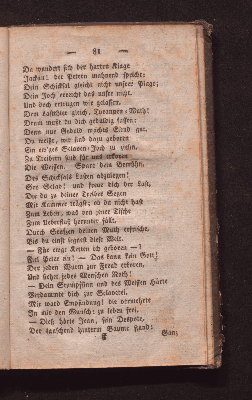 — 81 —
Da wandern sich der harten Klage
Jackau! der Petron mahnend spricht:
Dein Schicksal gleicht nicht unsrer Plage;
Dein Joch erreicht das unsre nicht.
Und doch ertragen wir gelassen.
Dem Lastthier gleich, Tyrannen-Wuth!
Denn mußt du dich geduldig fassen:
Denn nur Geduld machts Elend gut.
Du weißt, wir sind dazu geboren
Ein ew'ges Sclaven-Joch zu ziehn,
Zu Treibern sind für uns erkoren
Die Weißen. Spare dein Bemühn,
Des Schicksals Lasten abzulegen!
Sey Sclav! und krene dich der Last,
Die du zu deiner Treiber Segen
Mit Kummer trägst; ob du nicht hast
Zum Leben, was den ihrer Tische
Zum Ueberfluß herunter fällt.
Durch Seufzen deinen Muth erfrische,
Bis du einst segnest diese Welt.
— Für ewge Ketten ich geboren —!
Fiel Peter an! — Das kann kein Gott,
Der jeden Wurm zur Freud erkoren,
Und siehet jedes Menschen Noth!
— Dein Stumpfsinn und des Weißen Härte
Verdammte dich zur Sclaverei.
Mir ward Empfindung! die vermehrte
In mir den Wunsch: zu leben frei.
— Dieß hörte Jean, sein Despote,
Der lauschend hinterm Baume stand:
F
Ganz